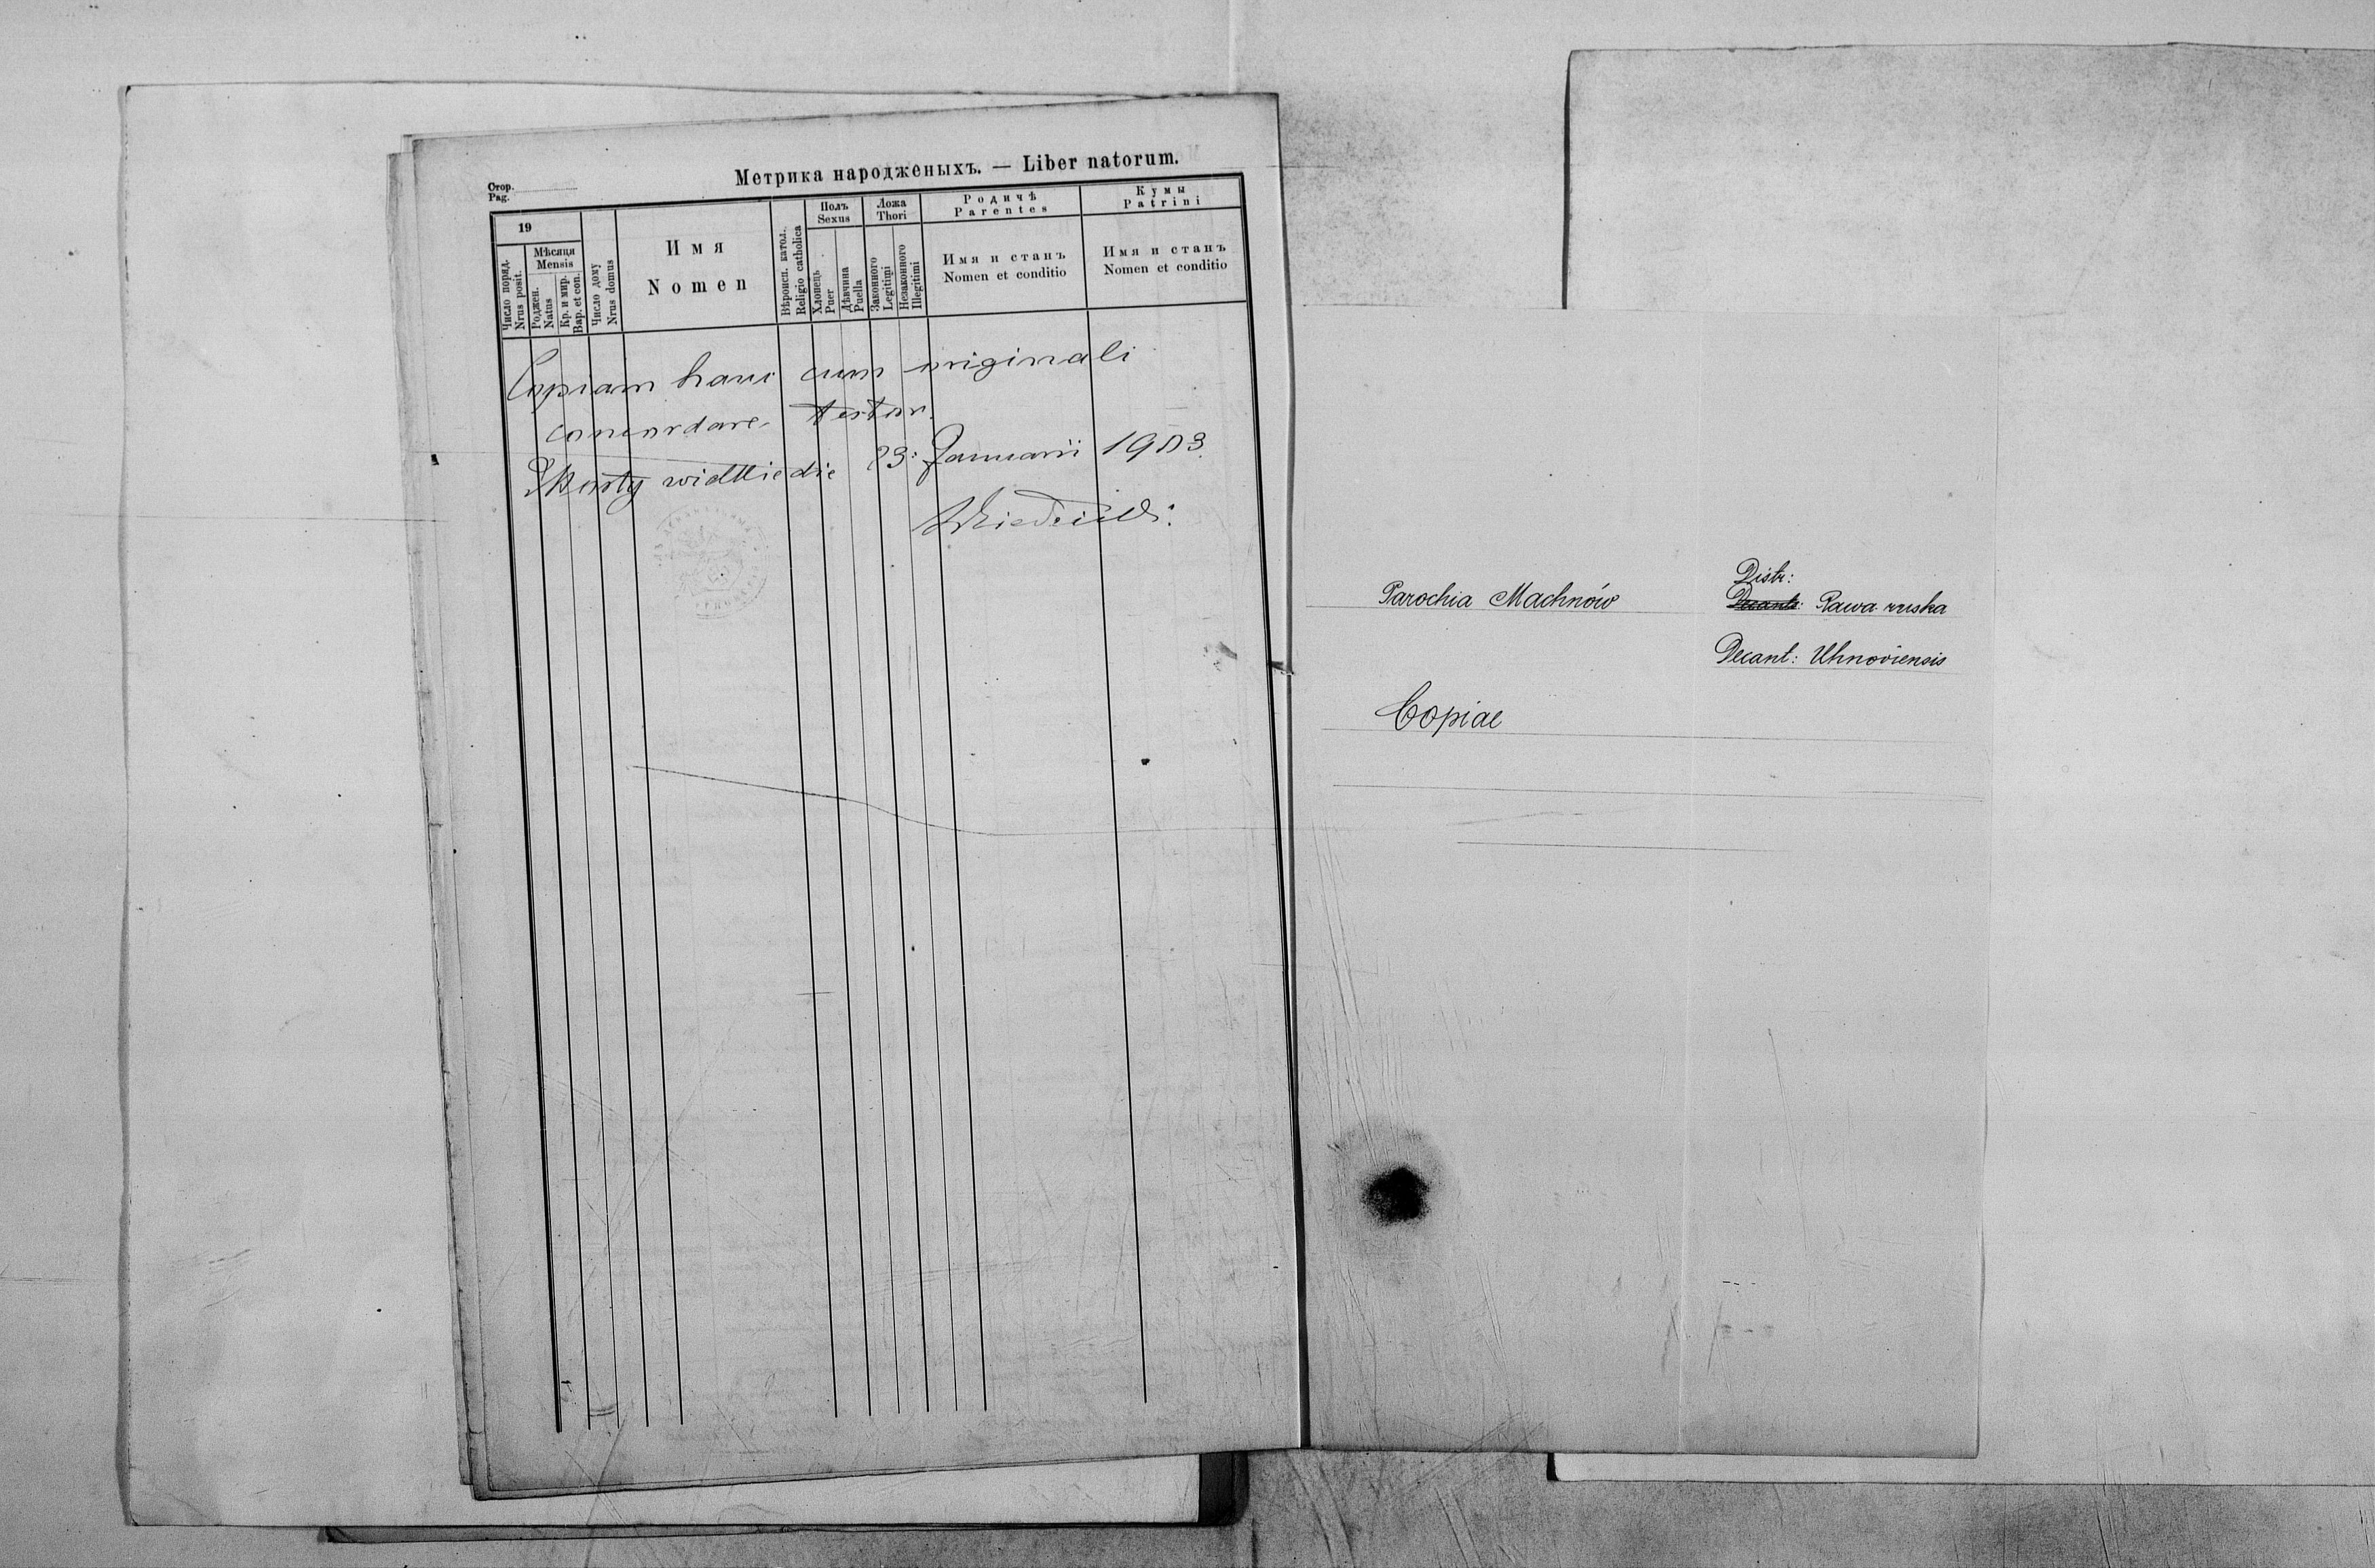 Метрика народженыхъ. — Liber natorum.
Стор.
Pag.
19
Число поряд.
Nrus posit.
Мѣсяця
Mensis
Роджен.
Natus
Кр. и мир.
Bap. et con.
Число дому
Nrus domus
Имя
Nomen
Вѣроисп. катол.
Religio catholica
Полъ
Sexus
Хлопець
Puer
Дѣвчина
Puella
Ложа
Thori
Законного
Legitimi
Незаконного
Illegitimi
Родичѣ
Parentes
Имя и станъ
Nomen et conditio
Кумы
Patrini
Имя и станъ
Nomen et conditio
Copiam hanc cum originali
concordare testor.
die 23: Januarii 1903.
Parochia Machnów
Distr:
Decant: Rawa ruska
Decant: Uhnoviensis
Copiae